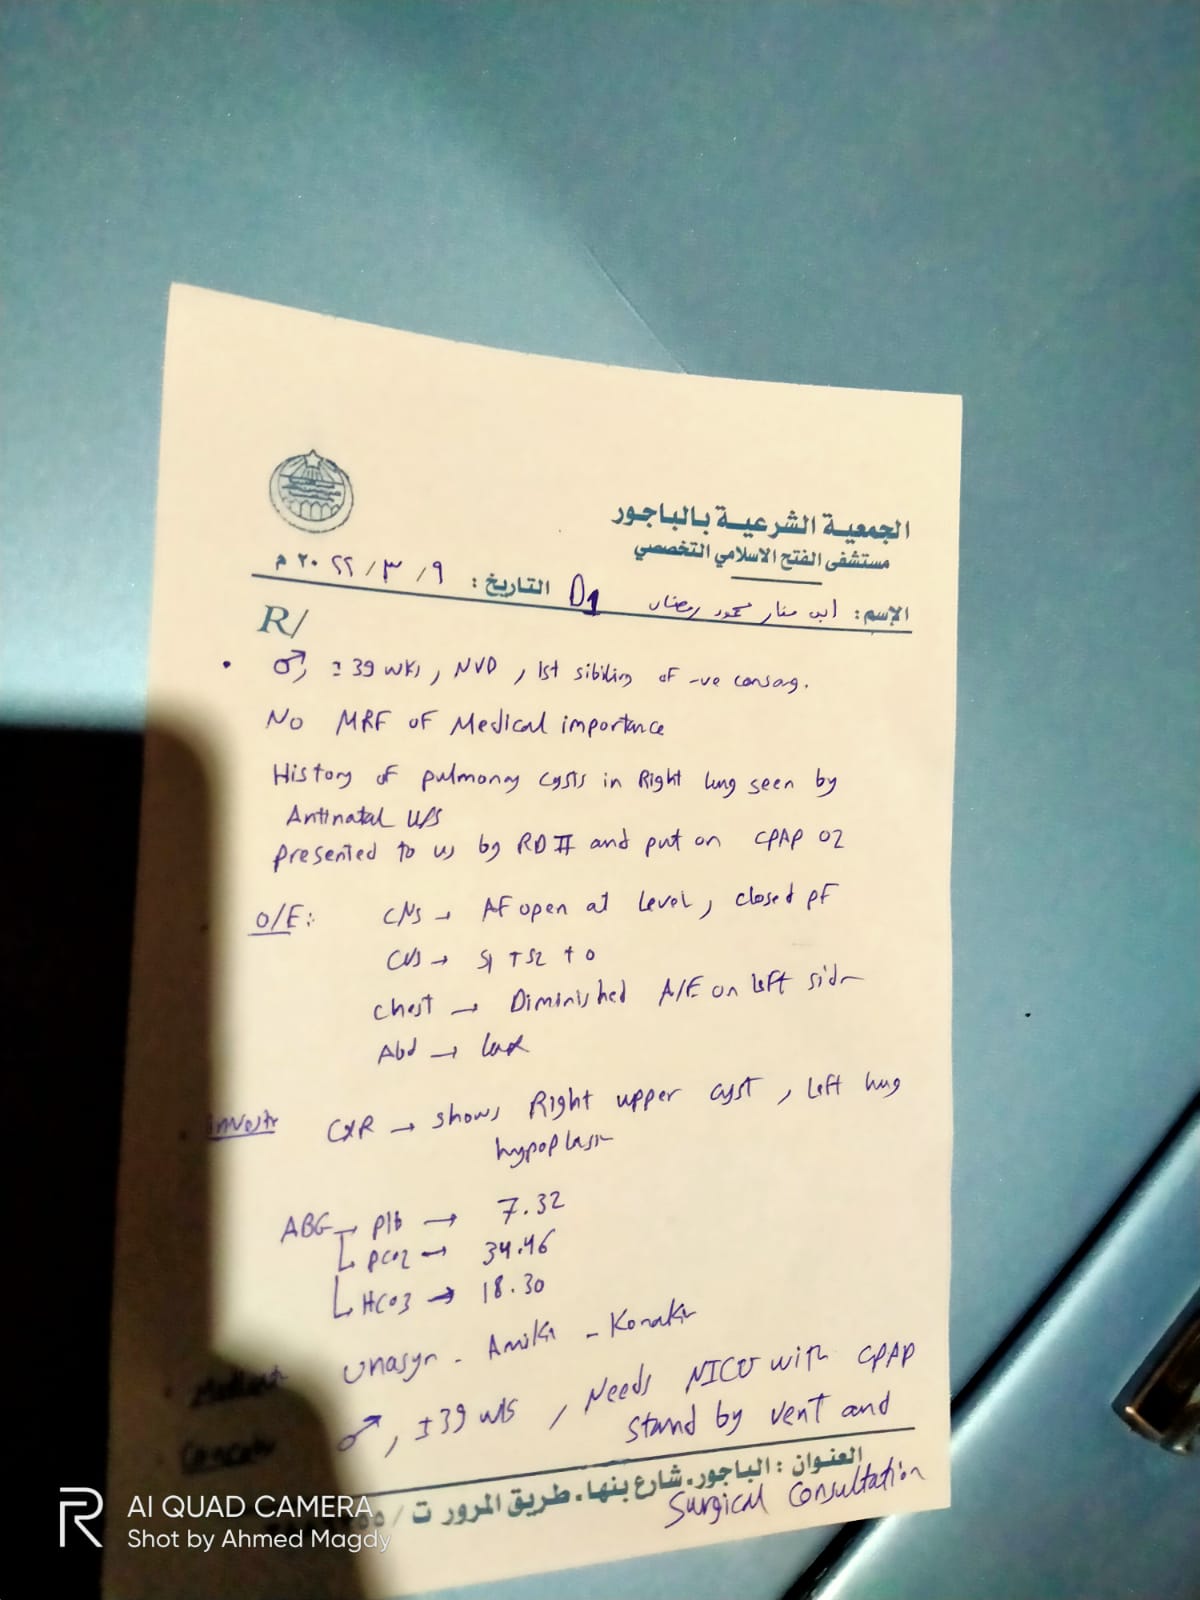 الجمعية الشرعية بالباجور
مستشفى الفتح الاسلامي التخصصي
الإسم: ابن منار محمود رمضان D1 التاريخ: ٩ / ٣ / ٢٠٢٢ م
R/
• ♂, ± 39 wks, NVD, 1st sibiling of -ve consag.
No MRF of Medical importance
History of pulmonary cysts in Right lung seen by
Antinatal U/S
presented to us by RD II and put on CPAP O2
O/E: CNS → AF open at level, closed PF
CVS → S1 + S2 + 0
chest → Diminished A/E on left side
Abd → lax
investr CXR → shows Right upper cyst, left lung
hypoplasia
ABG → PH → 7.32
PCO2 → 34.46
HCO3 → 18.30
Unasyn - Amikin - Konakion
♂, ±39 wks, Needs NICU with CPAP
stand by vent and
العنوان: الباجور. شارع بنها. طريق المرور ت /
Surgical Consultation
R
AI QUAD CAMERA
Shot by Ahmed Magdy